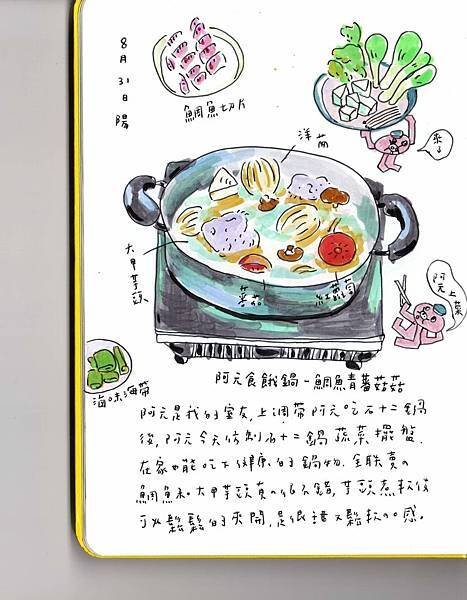 8月31日陽
鯛魚切片
洋蔥
來了
大甲芋頭
蕃茄
紅蘿蔔
阿元上菜
滷味海帶
阿元食餓鍋-鯛魚青蕃菇菇
阿元是我的室友,上週帶阿元吃石十二鍋
後,阿元今天仿制石十二鍋蔬菜擺盤.
在家也能吃下健康的鍋物.全聯賣の
鯛魚和大甲芋頭真の很不錯,芋頭煮軟後
可以鬆鬆的夾開,是很 又鬆軟口感。